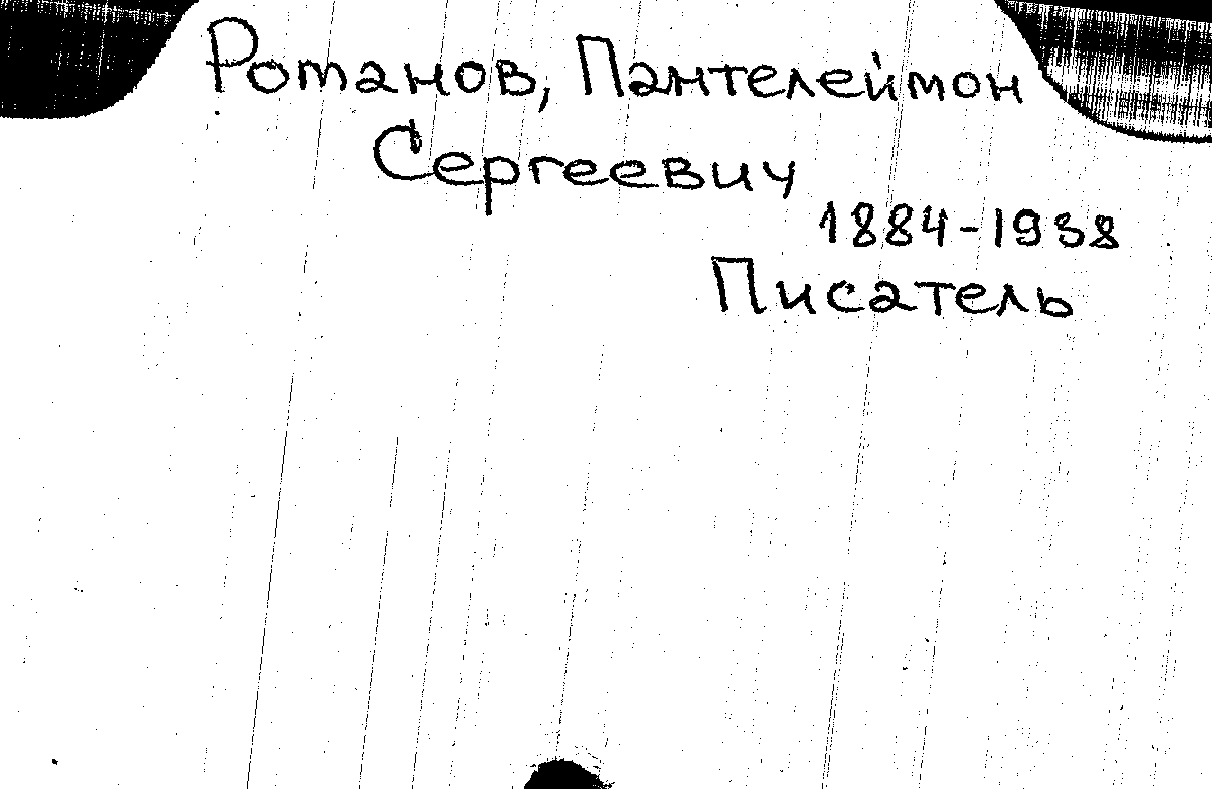 Романов, Пантелеймон
Сергеевич
1884-1938
Писатель